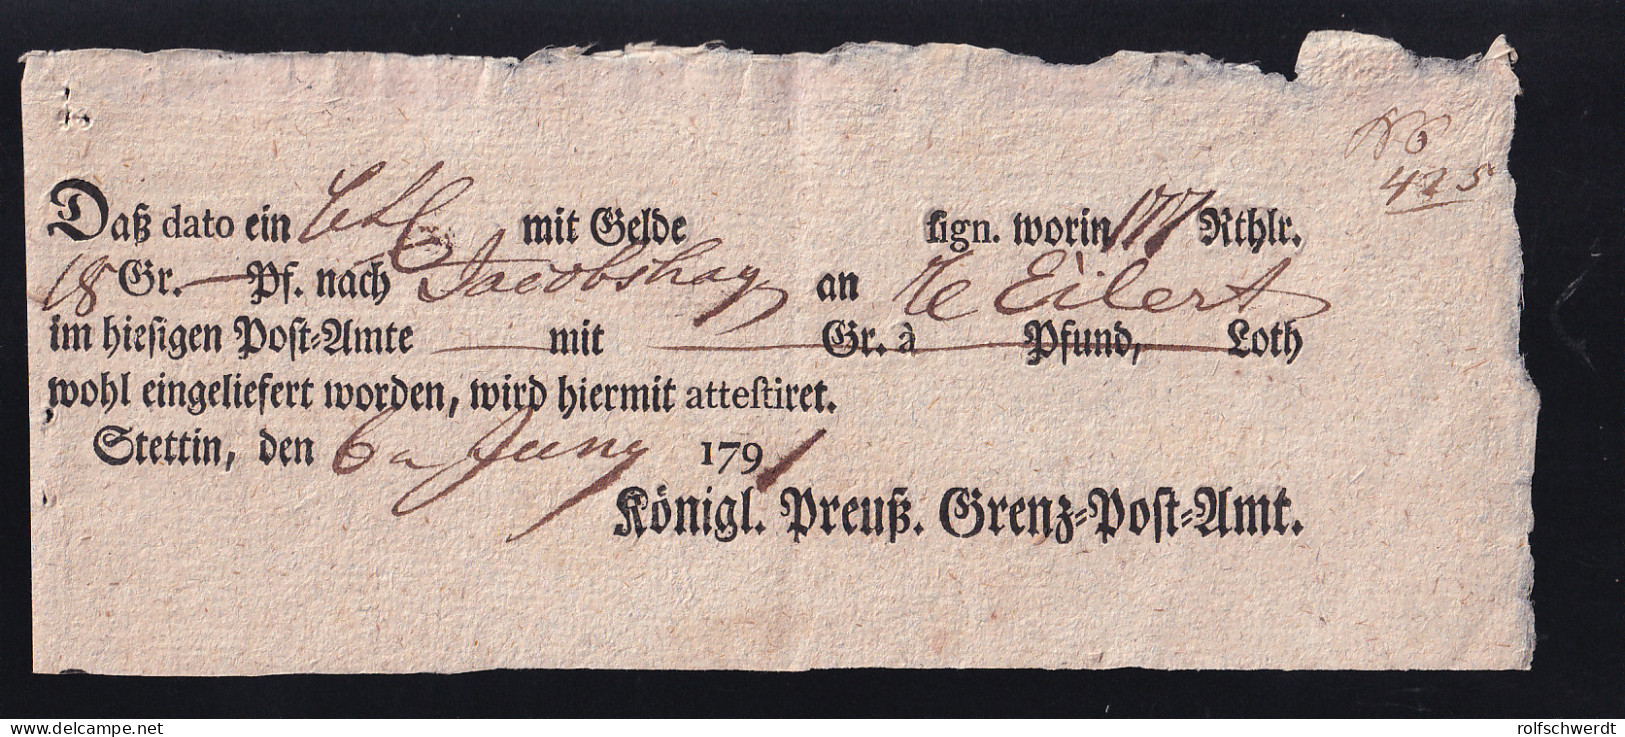 425
Daß dato ein mit Gelde sign. worin 177 Rthlr.
18 Gr. — Pf. nach Jacobshag an Eilert
im hiesigen Post-Amte — mit — Gr. à — Pfund, — Loth
wohl eingeliefert worden, wird hiermit attestiret.
Stettin, den 6 Juny 1791
Königl. Preuß. Grenz-Post-Amt.
rolfschwerdt